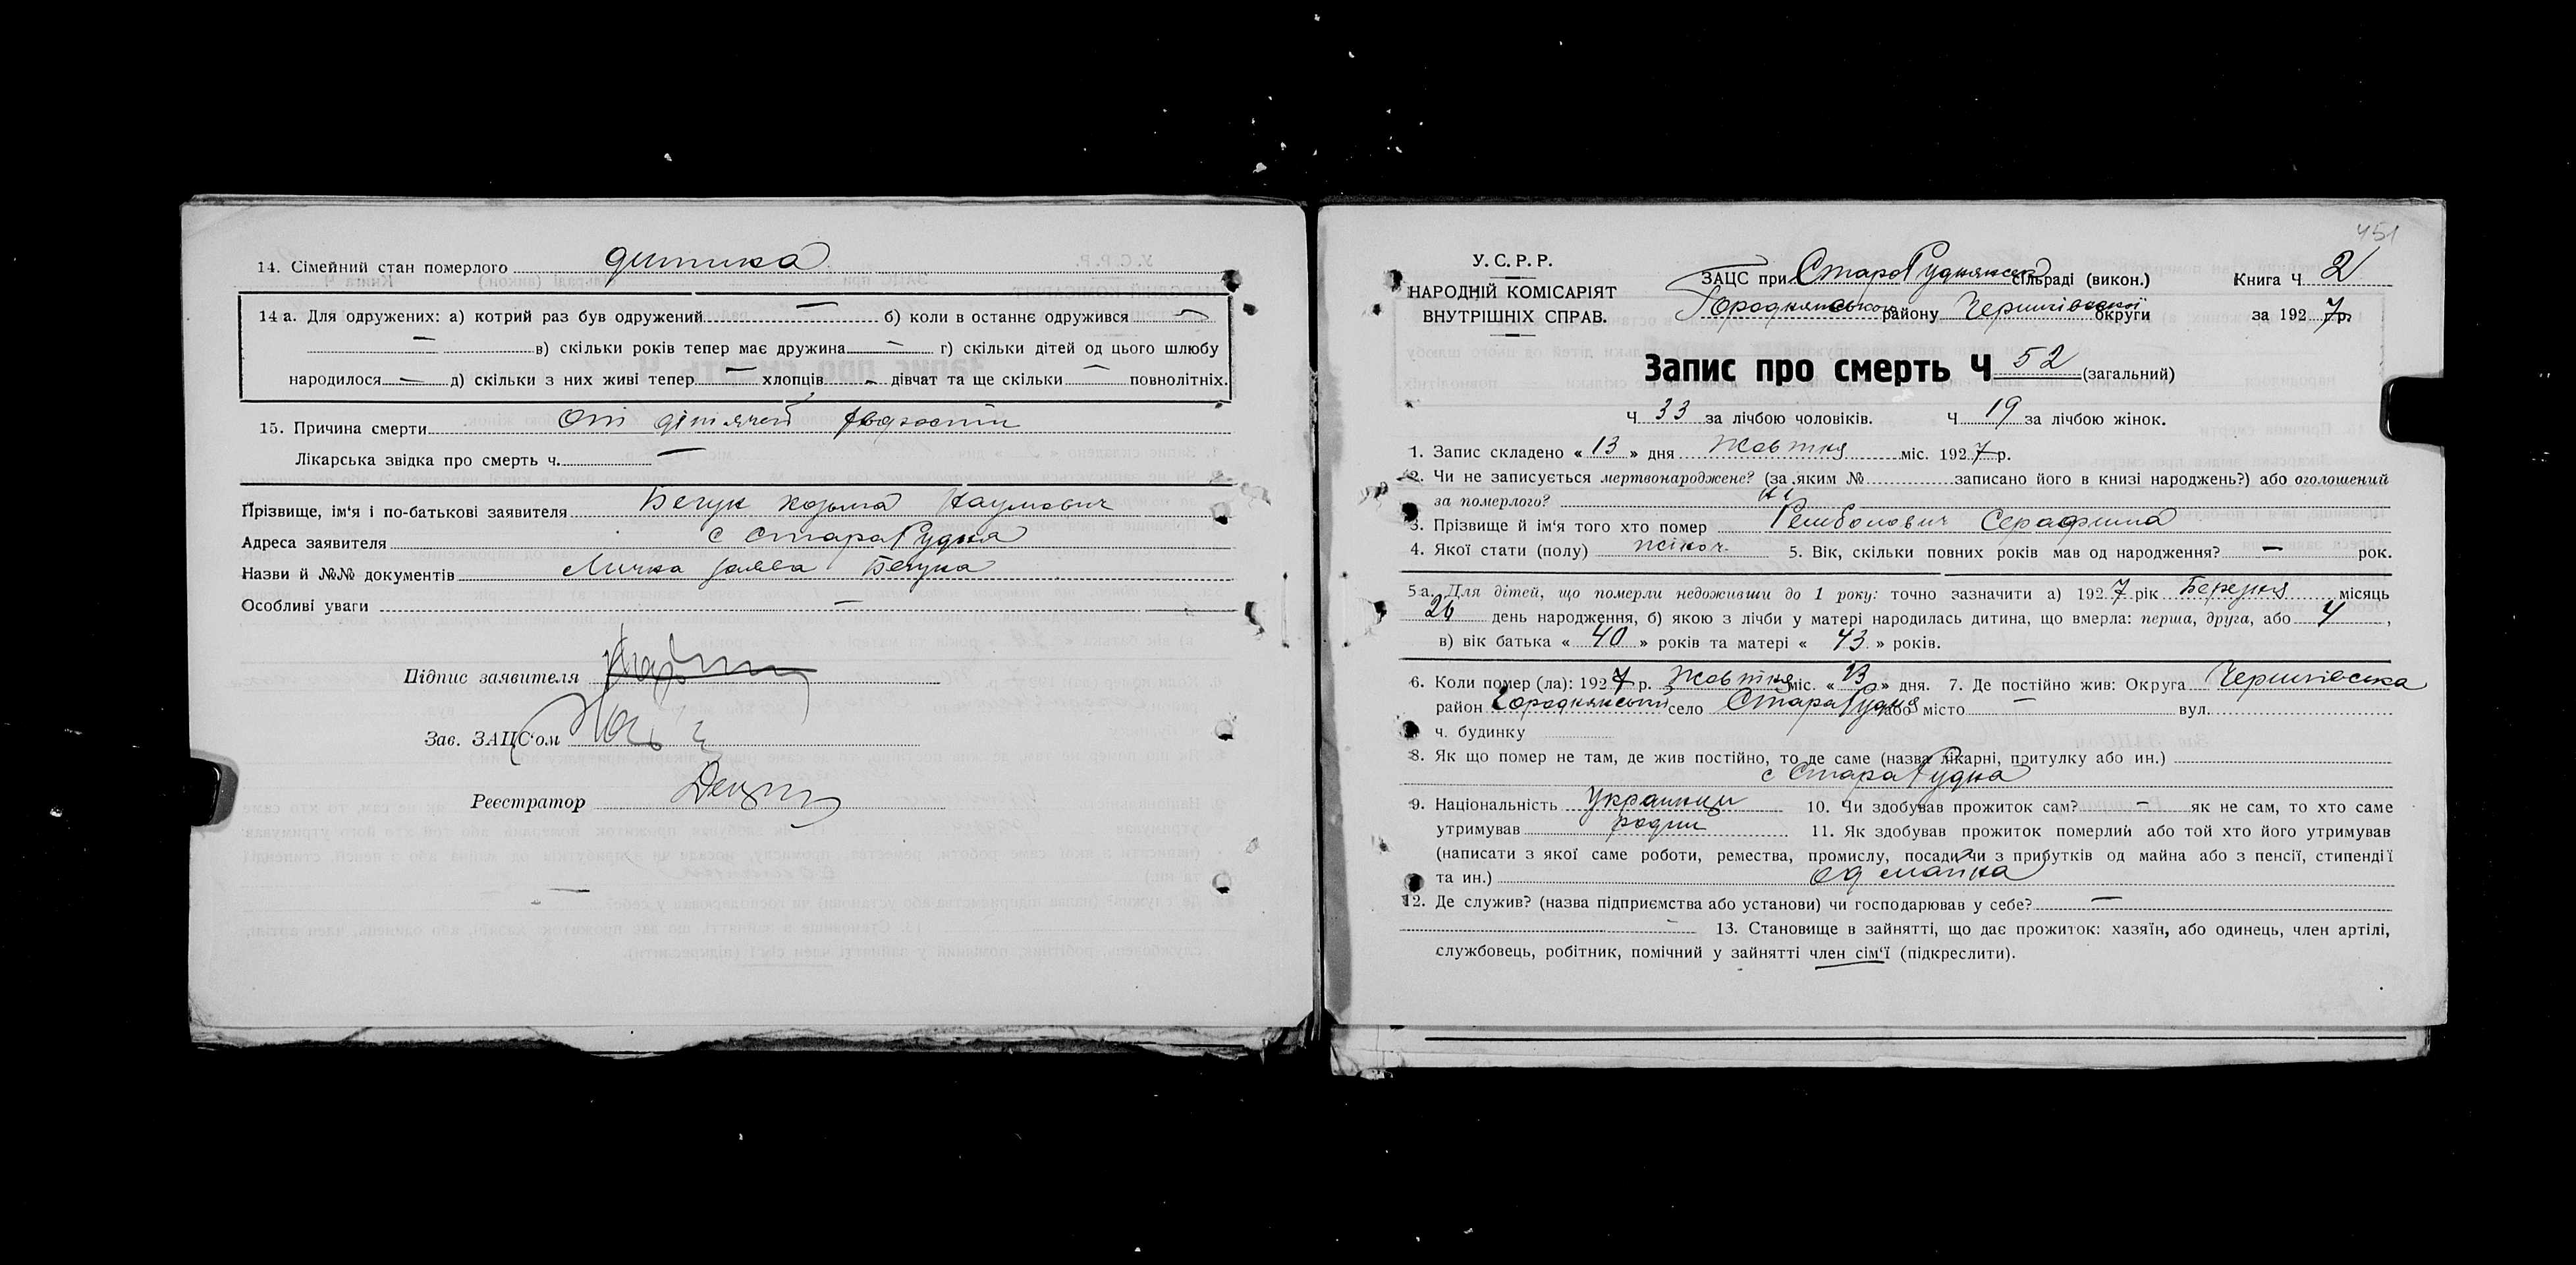 14. Сімейний стан померлого дитина
14 а. Для одружених: а) котрий раз був одружений — б) коли в останнє одружився —
— в) скільки років тепер має дружина — г) скільки дітей од цього шлюбу
народилося — д) скільки з них живі тепер — хлопців — дівчат та ще скільки — повнолітніх.
15. Причина смерти От дітячей
Лікарська звідка про смерть ч. —
Прізвище, ім'я і по-батькові заявителя Бегун Козьма Наумович
Адреса заявителя с Стара Рудня
Назви й №№ документів Лична заява Бегуна
Особливі уваги —
Підпис заявителя
Зав. ЗАЦС'ом
Реєстратор
451
У. С. Р. Р.
НАРОДНІЙ КОМІСАРІЯТ
ВНУТРІШНІХ СПРАВ.
ЗАЦС при Старо Руднянськ сільраді (викон.) Книга Ч 2
Городнянського району Чернигівської округи за 1927 р.
Запис про смерть Ч 52 (загальний)
Ч 33 за лічбою чоловіків. Ч 19 за лічбою жінок.
1. Запис складено « 13 » дня Жовтня міс. 1927 р.
2. Чи не записується мертвонароджене? (за яким № записано його в книзі народжень?) або оголошений
за померлого? Ні
3. Прізвище й ім'я того хто помер Серафима
4. Якої стати (полу) жіноч. 5. Вік, скільки повних років мав од народження? — рок.
5 а. Для дітей, що померли недоживши до 1 року: точно зазначити а) 1927 рік Березня місяць
26 день народження, б) якою з лічби у матері народилась дитина, що вмерла: перша, друга, або 4,
в) вік батька « 40 » років та матері « 43 » років.
6. Коли помер (ла): 1927 р. Жовтня міс. « 13 » дня. 7. Де постійно жив: Округа Чернигівська
район Городнянський село Стара Рудня або місто — вул.
ч. будинку
8. Як що помер не там, де жив постійно, то де саме (назва лікарні, притулку або ин.)
с Стара Рудна
9. Національність Украинци 10. Чи здобував прожиток сам? — як не сам, то хто саме
утримував родит 11. Як здобував прожиток померлий або той хто його утримував
(написати з якої саме роботи, ремества, промислу, посади чи з прибутків од майна або з пенсії, стипендії
та ин.) од майна
12. Де служив? (назва підприємства або установи) чи господарював у себе? —
— 13. Становище в зайнятті, що дає прожиток: хазяїн, або одинець, член артілі,
службовець, робітник, помічний у зайнятті член сім'ї (підкреслити).